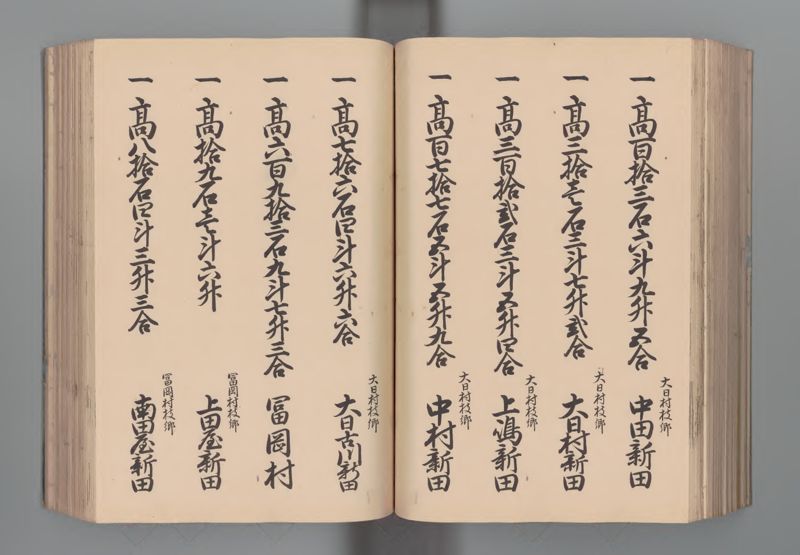 一 高百拾三石六斗九升五合
大日村枝郷
中田新田
一 高三拾壱石三斗七升弐合
大日村枝郷
大日村新田
一 高三百拾弐石三斗五升四合
大日村枝郷
上嶋新田
一 高百七拾七石五斗五升九合
大日村枝郷
中村新田
一 高七拾六石四斗六升六合
大日村枝郷
大日古川新田
一 高六百九拾三石九斗七升三合
冨岡村
一 高拾九石壱斗六升
冨岡村枝郷
上田屋新田
一 高八拾石四斗三升三合
冨岡村枝郷
南田屋新田